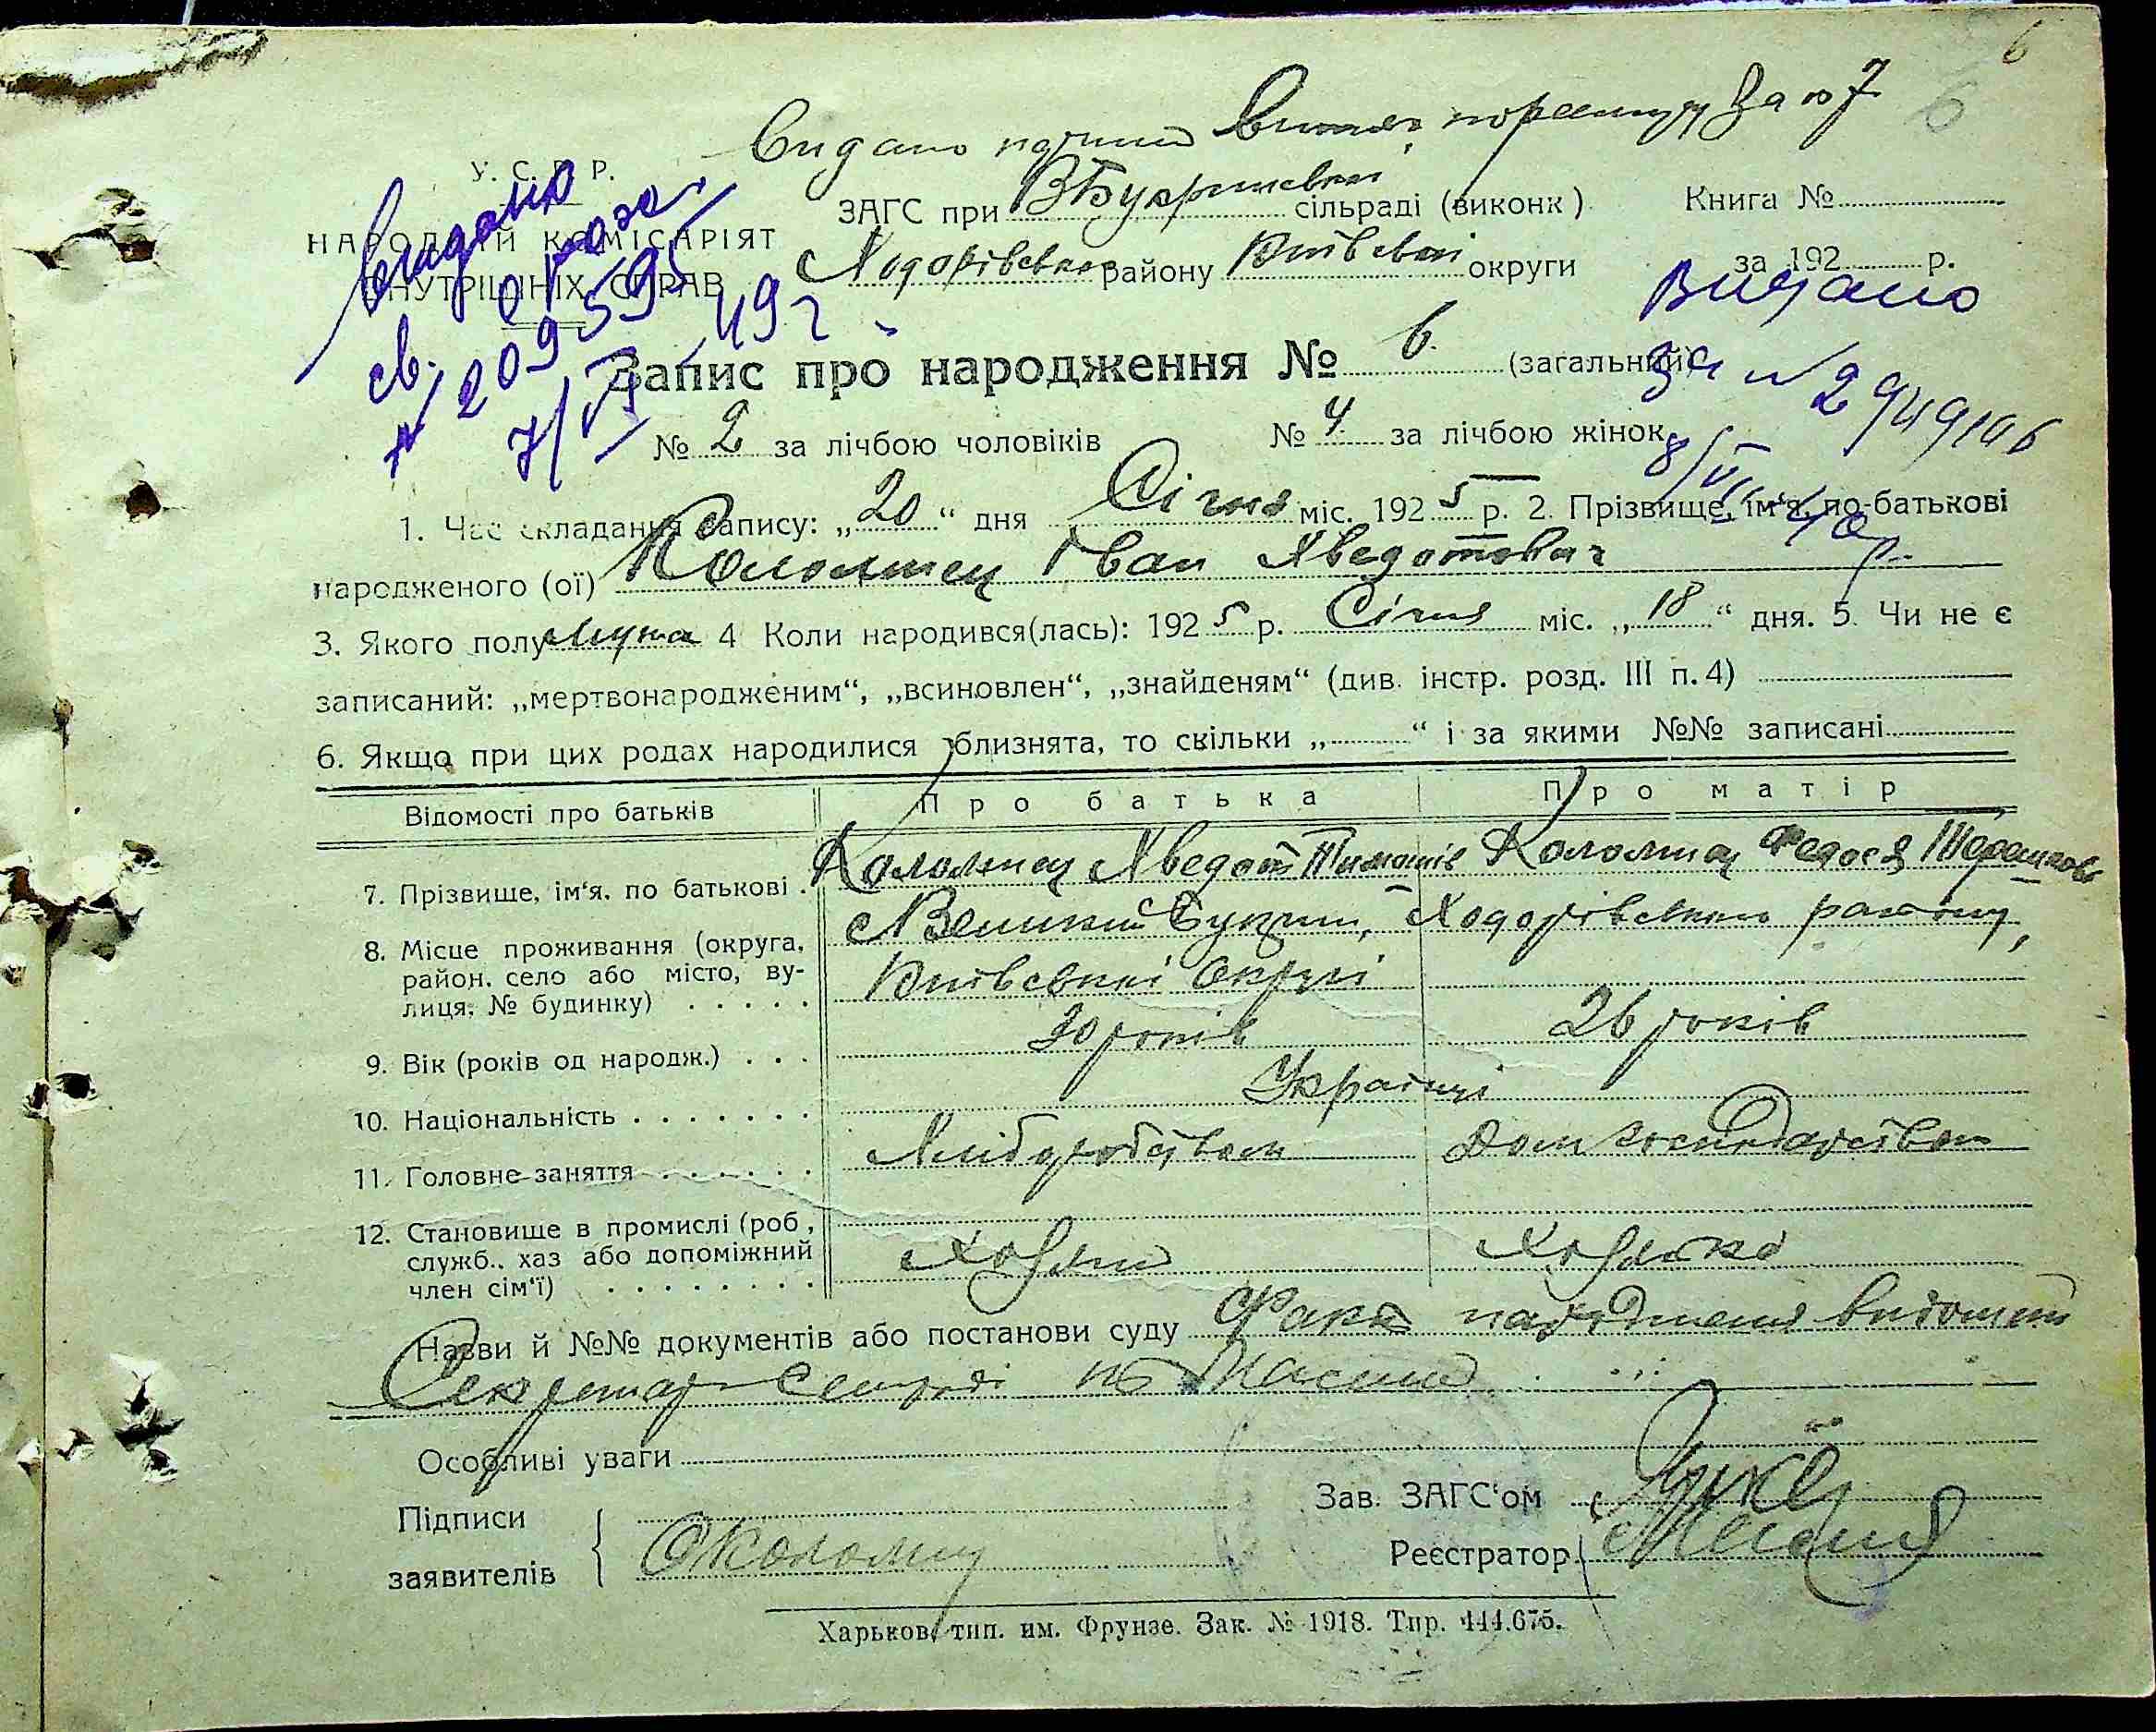 6
6
Видано за № 7
У. С. Р. Р.
НАРОДНІЙ КОМІСАРІЯТ
ВНУТРІШНІХ СПРАВ
Видано
св.
209595
7/VI 49 г
ЗАГС при В Букринській сільраді (виконк)
Книга №
Ходорівського району Київської округи
за 192 р.
Видано
за № 294910
Запис про народження № 6. (загальний)
№ 2 за лічбою чоловіків № 4 за лічбою жінок
1. Час складання запису: „20“ дня Січня міс. 1925 р. 2. Прізвище, ім‘я, по-батькові
народженого (ої) Коломиец Іван Хведотович
3. Якого полу Мужа 4 Коли народився(лась): 1925 р. Січня міс. „18“ дня. 5. Чи не є
записаний: „мертвонародженим“, „всиновлен“, „знайденям“ (див. інстр. розд. III п. 4)
6. Якщо при цих родах народилися близнята, то скільки „ “ і за якими №№ записані
Відомості про батьків Про батька Про матір
7. Прізвище, ім‘я, по батькові . Коломиец Хведот Коломиец Федося
8. Місце проживання (округа, район, село або місто, ву-
лиця, № будинку) . . . . .
с Великий Букрин, Ходорівського району,
Київської округі
9. Вік (років од народж.) . . . 30 років 26 років
10. Національність . . . . . . . Українці
11. Головне заняття . . . . . . Хліборобством Дом господарством
12. Становище в промислі (роб, служб., хаз або допоміжний
член сім‘ї) . . . . . . . .
Хозяин Хозяйка
Назви й №№ документів або постанови суду Факт народження
Секретар
Особливі уваги
Підписи
заявителів
Зав. ЗАГС‘ом
Реєстратор
Харьков, тип. им. Фрунзе. Зак. № 1918. Тир. 444.675.